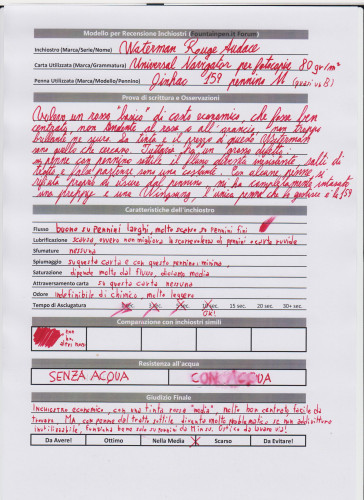 Modello per Recensione Inchiostri (Fountainpen.it Forum)
Inchiostro (Marca/Serie/Nome) Waterman Rouge Audace
Carta Utilizzata (Marca/Grammatura) Universal Navigator per fotocopie 80 gr/m²
Penna Utilizzata (Marca/Modello/Pennino) Jinhao 159 pennino M (quasi un B)
Prova di scrittura e Osservazioni
Volevo un rosso "tipico" di costo economico, che fosse ben
centrato, non tendente al rosa o all'arancio, non troppo
brillante né scuro. La tinta e il prezzo di questo Waterman
sono quello che cercavo. Tuttavia
penne con pennino sottile il flusso diventa insufficiente, salti di
tratto e false partenze sono una costante. Con alcune penne si
rifiuta di
una preppy e una Wingsung, l'unica penna che lo gestisce è la 159
Caratteristiche dell'inchiostro
Flusso buono su pennini larghi, molto scarso su pennini fini
Lubrificazione scarsa, ovvero non migliora la scorrevolezza di pennini o carta ruvida
Sfumature nessuna
Spiumaggio su questa carta e con questo pennino: minimo
Saturazione dipende molto dal flusso, diciamo media
Attraversamento carta su questa carta nessuno
Odore indefinibile di chimico, molto leggero
Tempo di Asciugatura 10 sec. 15 sec. 20 sec. 30+ sec.
OK!
Comparazione con inchiostri simili
non ho
Resistenza all'acqua
SENZA ACQUA CON ACQUA
Giudizio Finale
Inchiostro economico, con una tinta rossa "media", molto ben centrata, facile da
trovare. MA, con penne dal tratto sottile diventa molto problematico se non addirittura
inutilizzabile, funziona bene solo su pennini da M in su.
Da Avere! Ottimo Nella Media Scarso Da Evitare!